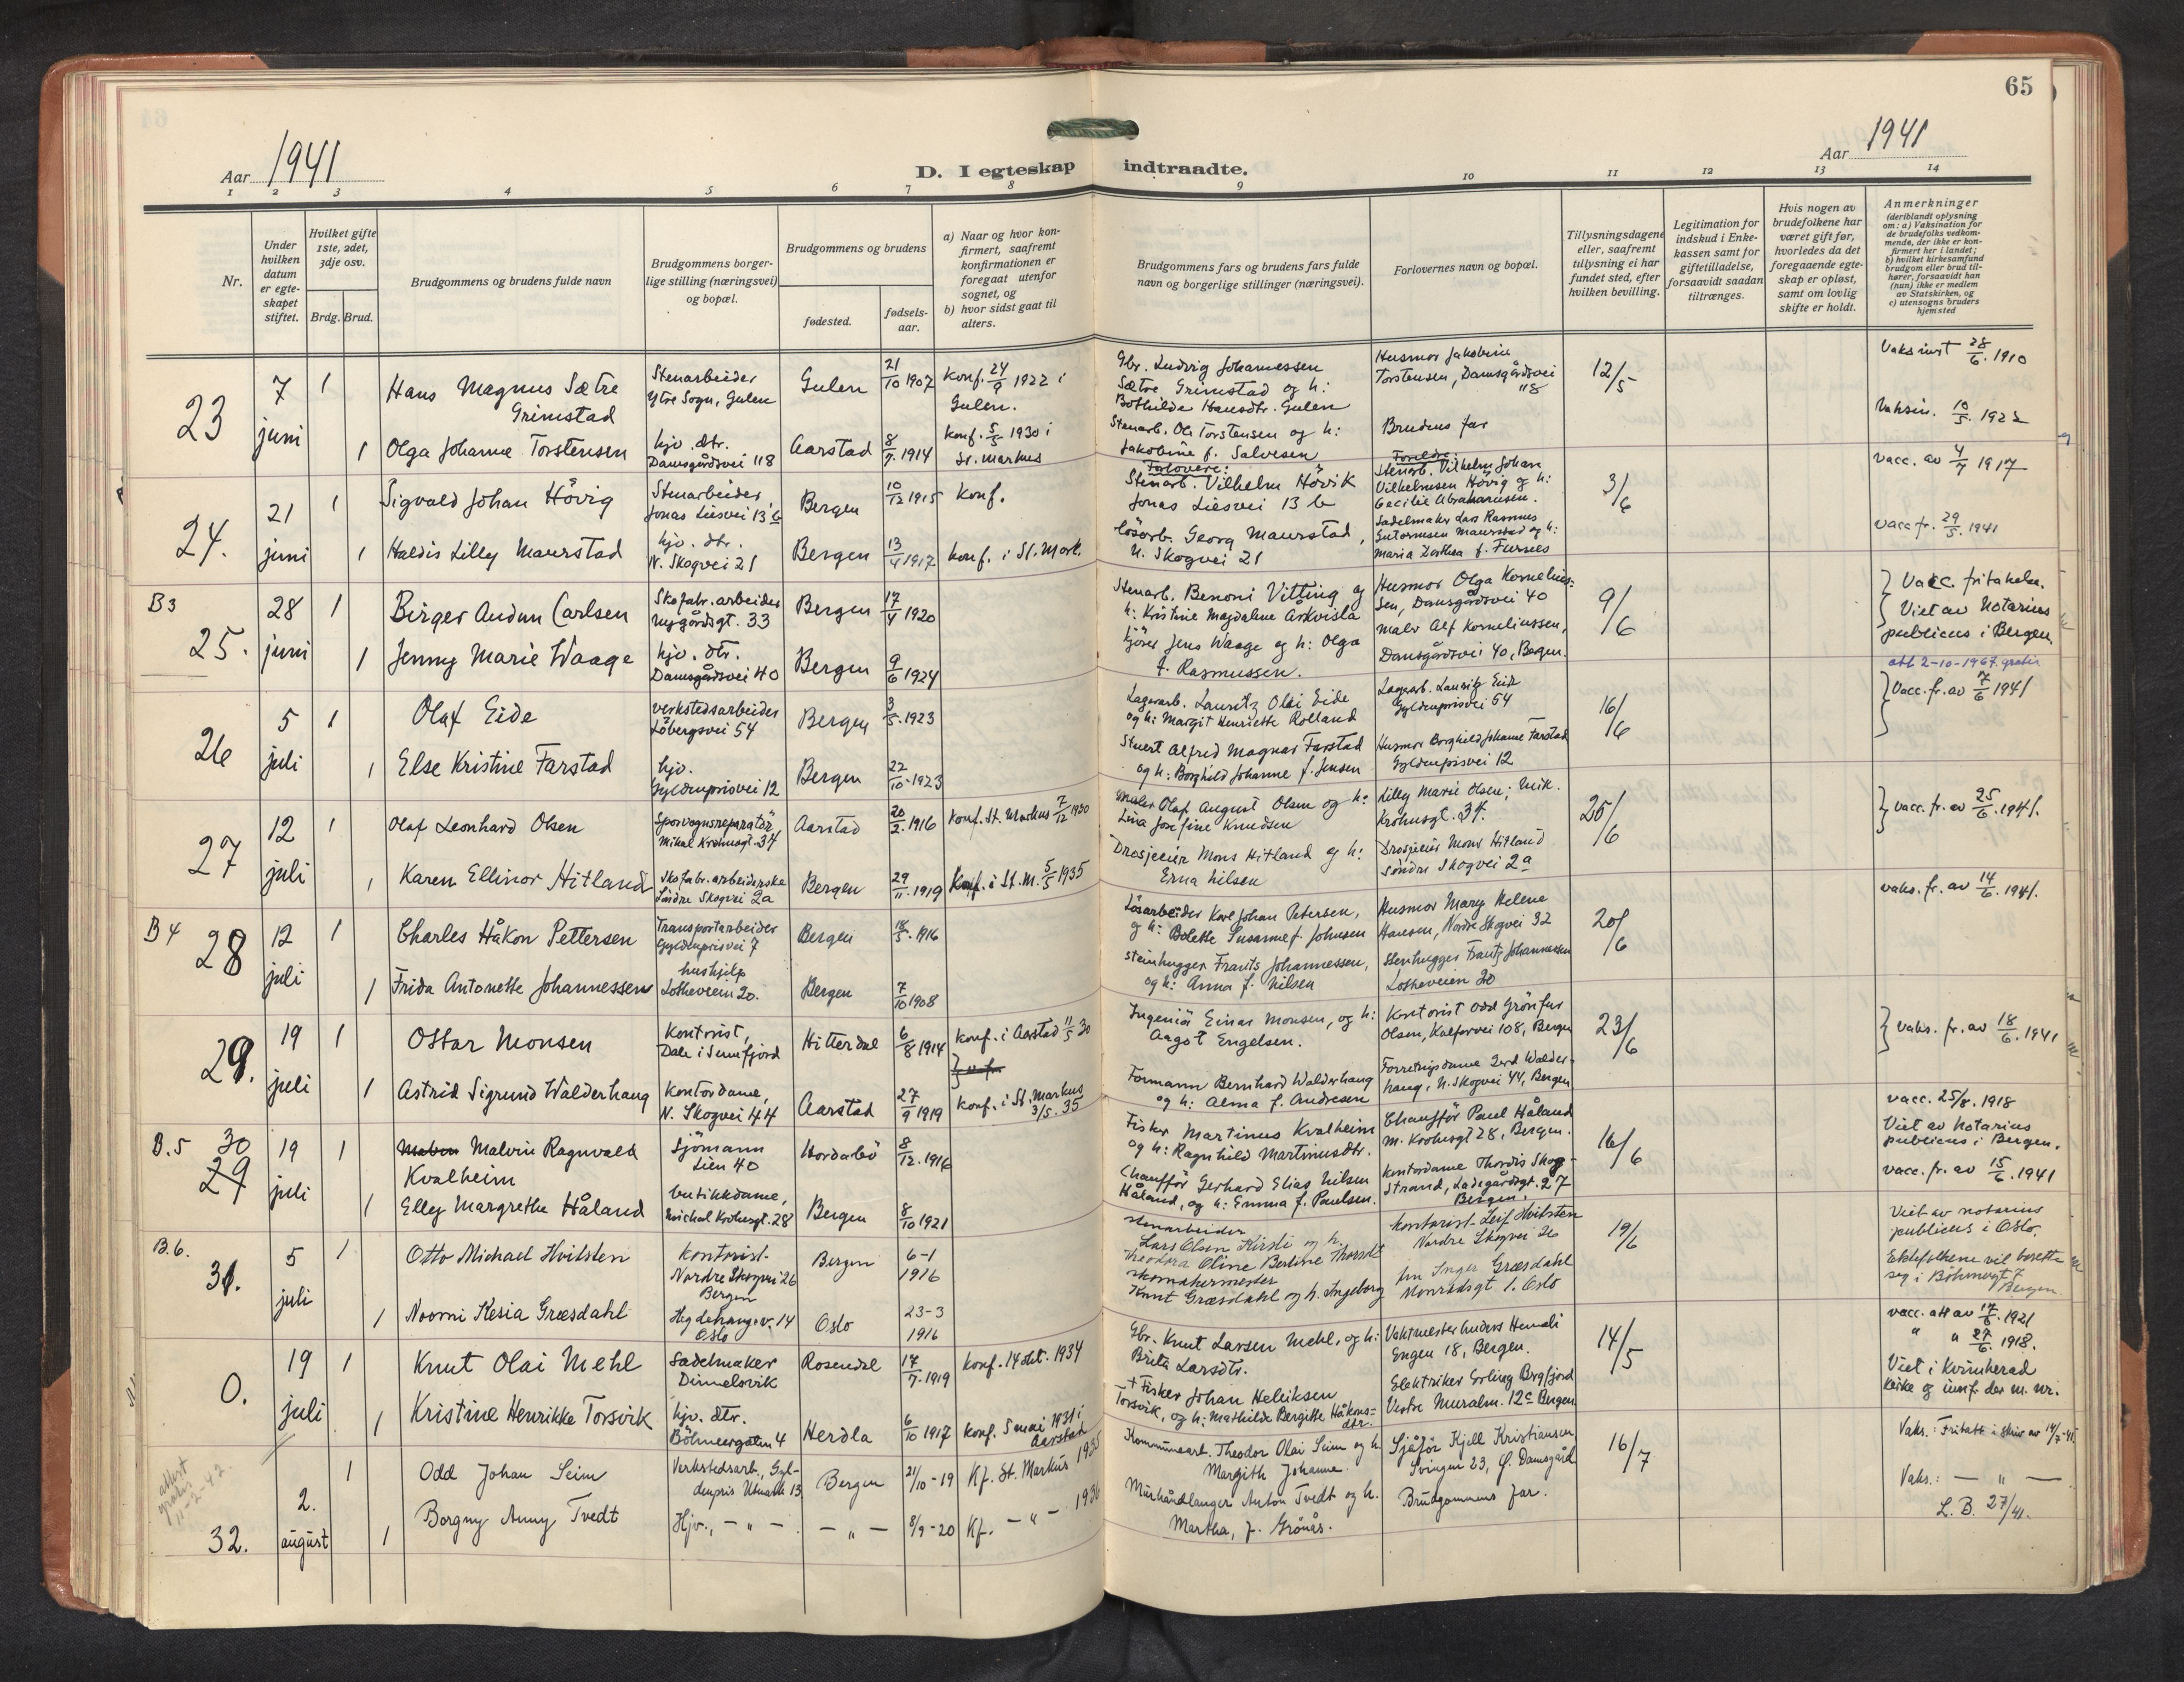 65
Aar 1941
D. I egteskap indtraadte.
Aar 1941
1 2 3 4 5 6 7 8 9 10 11 12 13 14
Nr.
Under hvilken datum er egteskapet stiftet.
Hvilket gifte 1ste, 2det, 3dje osv.
Brdg. Brud.
Brudgommens og brudens fulde navn
Brudgommens borgerlige stilling (næringsvei) og bopæl.
Brudgommens og brudens
fødested.
fødselsaar.
a) Naar og hvor konfirmert, saafremt konfirmationen er foregaat utenfor sognet, og
b) hvor sidst gaat til alters.
Brudgommens fars og brudens fars fulde navn og borgerlige stillinger (næringsvei).
Forlovernes navn og bopæl.
Tillysningsdagene eller, saafremt tillysning ei har fundet sted, efter hvilken bevilling.
Legitimation for indskud i Enkekassen samt for giftetilladelse, forsaavidt saadan tiltrænges.
Hvis nogen av brudefolkene har været gift før, hvorledes da det foregaaende egteskap er opløst, samt om lovlig skifte er holdt.
Anmerkninger
(deriblandt oplysning om: a) Vaksination for de brudefolks vedkommende, der ikke er konfirmert her i landet; b) hvilket kirkesamfund brudgom eller brud tilhører, forsaavidt han (hun) ikke er medlem av Statskirken, og c) utensogns bruders hjemsted
23
7 juni
1
Hans Magnus Sætre Grimstad
Stenarbeider
Ytre Sogn, Gulen
Gulen
21/10 1907
Konf. 24/9 1922 i Gulen.
Gbr. Ludvig Johannessen
Sætre Grimstad og h:
Bothilde Hansdtr. Gulen
Husmor Jakobine
Torstensen, Damsgårdsvei 118
12/5
Vaksinert 28/6. 1910
1
Olga Johanne Torstensen
hjv. dtr.
Damsgårdsvei 118
Aarstad
8/7. 1914
konf. 5/5 1930 i St. Markus
Stenarb. Ole Torstensen og h:
Jakobine f. Salvesen
Brudens far
Vaksin. 10/5. 1922
24.
21 juni
1
Sigvald Johan Hövig
Stenarbeider,
Jonas Liesvei 13 b
Bergen
10/12 1915
Konf.
Forlovere:
Stenarb. Vilhelm Hövik
Jonas Liesvei 13 b
Foreldre:
Stenarb. Vilhelm Johan
Vilhelmsen Hövig og h:
Cecilie Abrahamsen.
3/6
vacc. av 4/7 1917
1
Haldis Lilly Maurstad
hjv. dtr.
N. Skogvei 21
Bergen
13/4 1917
konf. i St. Mark.
Lösarb. Georg Maurstad,
N. Skogvei 21
Sadelmaker Lars Rasmus
Gutormsen Maurstad og h:
Maria Dorthea f. Furnes
vacc fr. 29/5. 1941
B3
25.
28 juni
1
Birger Audun Carlsen
Skofabr. arbeider
Nygårdsgt. 33
Bergen
17/4 1920
Stenarb. Benoni Vitting og
h: Kristine Magdalene Arkvisla
Husmor Olga Kornelius-
sen, Damsgårdsvei 40
9/6
Vacc. fritakelse.
Viet av Notarius
publicus i Bergen
1
Jenny Marie Waage
hjv. dtr.
Damsgårdsvei 40
Bergen
9/6 1924
kjörer Jens Waage og h: Olga
f. Rasmussen.
Maler Alf Korneliussen,
Damsgårdsvei 40, Bergen.
att 2-10-1967 gratis
26
5 juli
1
Olaf Eide
verkstedsarbeider
Löbergsvei 54
Bergen
3/5. 1923
Lagerarb. Lauritz Olai Eide
og h: Margit Henriette Rolland
Lagerarb. Lauritz Eide
Gyldenprisvei 54
16/6
Vacc. fr. av 7/6 1941
1
Else Kristine Farstad
hjv.
Gyldenprisvei 12
Bergen
22/10. 1923
Stuert Alfred Magnar Farstad
og h: Borghild Johanne f. Jensen
Husmor Borghild Johanne Farstad
Gyldenprisvei 12
27
12 juli
1
Olaf Leonhard Olsen
Sporvognsreparatör
Mikal Krohnsgt. 34
Aarstad
20/2. 1916
Konf. St. Markus 7/12 1930
Maler Olaf August Olsen og h:
Lina Josefine Knudsen
Lilly Marie Olsen, Mik.
Krohnsgt. 34.
25/6
vacc. fr. av 25/6. 1941.
1
Karen Ellinor Hitland
Skofabr. arbeiderske
Söndre Skogvei 2a
Bergen
29/11. 1919
Konf. i St. M. 5/5 1935
Drosjeeier Mons Hitland og h:
Erna Nilsen
Drosjeeier Mons Hitland
Söndre Skogvei 2a
B4
28
12 juli
1
Charles Håkon Pettersen
Transportarbeider
Gyldenprisvei 7
Bergen
18/5. 1916
Lösarbeider Karl Johan Petersen,
og h: Bolette Susanne f. Johnsen
Husmor Mary Helene
Hansen, Nordre Skogvei 32
20/6
vaks. fr. av 14/6. 1941.
1
Frida Antonette Johannessen
hushjelp
Lotheveien 20.
Bergen
7/10 1908
Steinhugger Frants Johannessen,
og h: Anna f. Nilsen
Stenhugger Frantz Johannessen
Lotheveien 20
29.
19 juli
1
Ottar Monsen
Kontorist,
Dale i Sunnfjord
Hitterdal
6/8 1914
konf. i Aarstad 11/5 30
Ingeniör Einar Monsen, og h:
Aagot Engelsen.
Kontorist Odd Grönfur
Olsen, Kalfarvei 108, Bergen
23/6
Vaks. fr. av 18/6. 1941
1
Astrid Sigrund Walderhaug
Kontordame,
N. Skogvei 44
Aarstad
27/9 1919
konf. i St. Markus 3/5. 35
Formann Bernhard Walderhaug
og h: Alma f. Andresen
Forretningsdame Gerd Walder-
haug, N. Skogvei 44, Bergen
B.5
30
29
19 juli
1
Malvin Ragnvald
Kvalheim
Sjömann
Lien 40
Hordabö
8/12. 1916
Fisker Martinus Kvalheim
og h: Ragnhild Martinusdtr.
Chaufför Paul Håland
M. Krohnsgt 28, Bergen.
16/6
vacc. 25/8. 1918
Viet av Notarius
publicus i Bergen.
1
Elly Margrethe Håland
butikkdame,
Michal Krohnsgt. 28
Bergen
8/10 1921
Chaufför Gerhard Elias Nilsen
Håland, og h: Emma f. Paulsen.
Kontordame Thordis Skog-
strand, Ladegårdsgt. 27
Bergen.
vacc. fr. av 15/6. 1941
B.6.
31.
5 juli
1
Otto Michael Hvitsten
Kontorist.
Nordre Skogvei 26
Bergen
Bergen
6-1
1916
Stenarbeider
Lars Olsen Kirsti og h.
Theodora Oline Berline Thorsdt
Kontorist Leif Hvitsten
Nordre Skogvei 26
19/6
Viet av notarius
publicus i Oslo.
Ektefolkene vil bosette
seg i Böhmergt 7
Bergen
1
Noomi Kesia Græsdahl
Hegdehaugsv. 14
Oslo
Oslo
23-3
1916
Skomakermester
Knut Græsdahl og h. Ingeborg
fru Inger Græsdahl
Monradsgt 1. Oslo
0.
19 juli
1
Knut Olai Mehl
Sadelmaker
Dimelsvik
Rosendal
17/7. 1919
konf. 14 okt. 1934
Gbr. Knut Larsen Mehl, og h:
Brita Larsdtr.
Engen 18, Bergen.
14/5
vacc. att av 17/6. 1921
" " 27/6. 1918.
Viet i Kvinherad
kirke og innf. der m. nr.
1
Kristine Henrikke Torsvik
hjv. dtr.
Böhmergaten 4
Herdla
6/10 1917
konf. 5 mai 1931 i Aarstad
+ Fisker Johan Heliksen
Torsvik, og h: Mathilde Bergitte Håkons-
dtr.
Elektriker Erling Bergfjord
Vestre Muralm. 12c Bergen
attest
gratis
11-2-42
32.
2. august
1
Odd Johan Seim
Verkstedsarb., Gyl-
denpris Utmark 13
Bergen
21/10-19
Kf. St. Markus 1935
Kommunearb. Theodor Olai Seim og h.
Margith Johanne.
Sjåför Kjell Kristiansen
Svingen 23, Ø. Damsgård
16/7
Vaks.: Fritatt i skriv av 14/7-41.
1
Borgny Anny Tvedt
Hjv., — " —
— " —
8/9-20
Kf. — " — 1936
Murhåndlanger Anton Tvedt og h.
Martha, f. Grönås.
Brudgommens far.
Vaks.: — " —
L. B. 27/41.